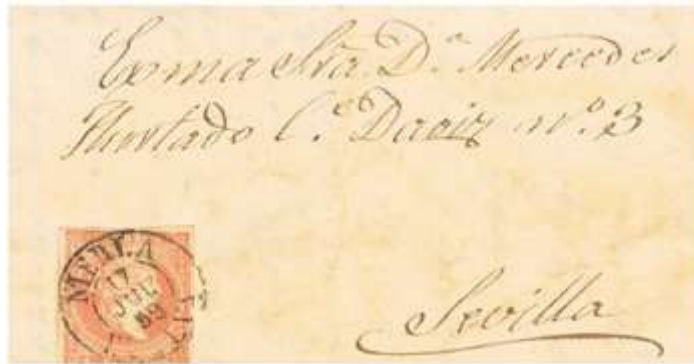 Exma Sra. Dª Mercedes
Hurtado C.e Daoiz nº. 3
MEDI.A
17
JUL
Sevilla